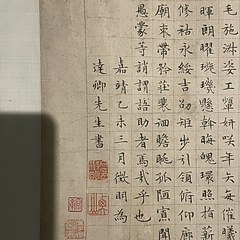 毛施淑姿工顰妍咲年矢每催曦
暉朗曜璇璣懸斡晦魄環照指薪
修祜永綏吉劭矩步引領俯仰廊
廟束帶矜莊裵回瞻眺孤陋寡聞
愚蒙等誚謂語助者焉哉乎也
嘉靖乙未三月徵明為
達卿先生書